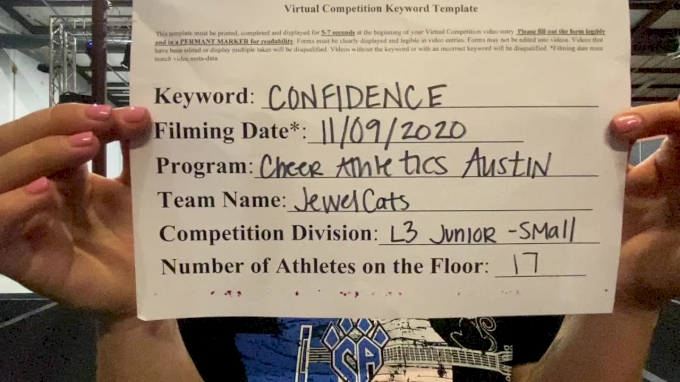 Virtual Competition Keyword Template
This template must be printed, completed and displayed for 5-7 seconds at the beginning of your Virtual Competition video entry. Please fill out the form legibly
and in a PERMANT MARKER for readability. Forms must be clearly displayed and legible in video entries. Forms may not be edited into videos. Videos that
have been edited or display multiple takes will be disqualified. Videos without the keyword or with an incorrect keyword will be disqualified. *Filming date must
match video meta-data
Keyword: CONFIDENCE
Filming Date*: 11/09/2020
Program: Cheer Athletics Austin
Team Name: JewelCats
Competition Division: L3 Junior - Small
Number of Athletes on the Floor: 17
CA